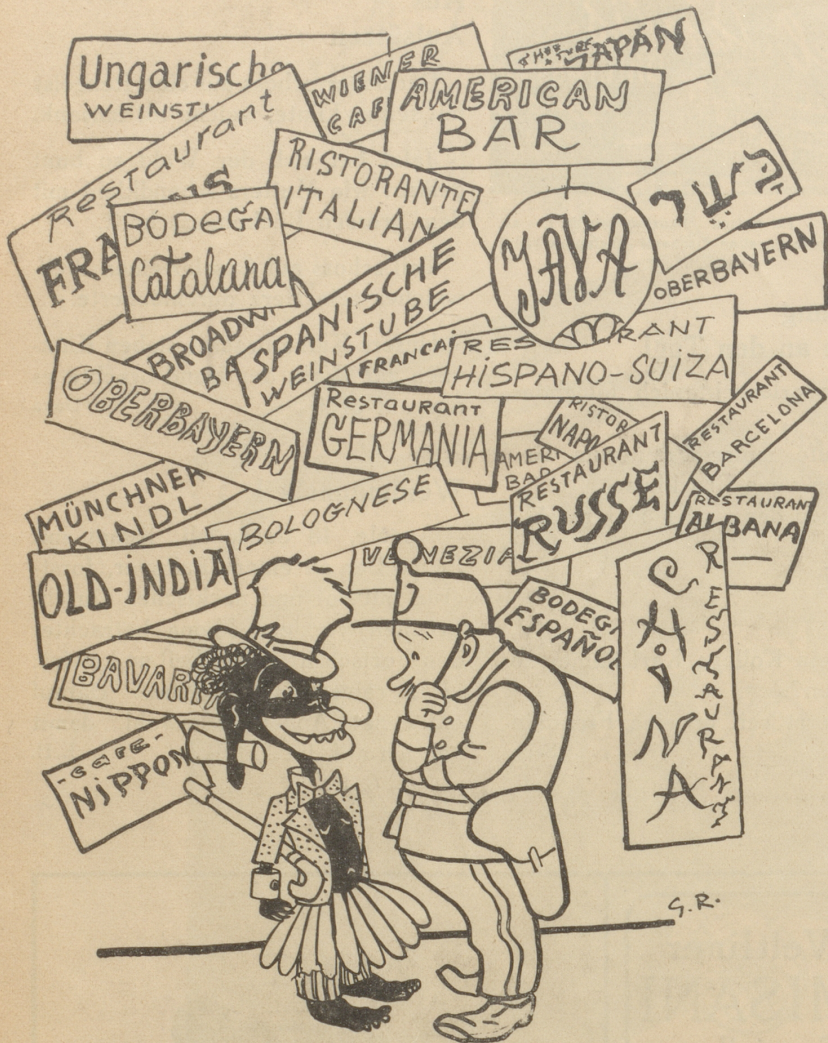 Ungarische
WEINSTU
WIENER
CAF
JAPAN
AMERICAN
BAR
Restaurant
FRA
NS
RISTORANTE
ITALIAN
BODEGA
Catalana
JAVA
כשר
OBERBAYERN
SPANISCHE
WEINSTUBE
BROADW
BA
FRANCAI
RES RANT
HISPANO-SUIZA
OBERBAYERN
Restaurant
GERMANIA
RISTOR
NAPO
RESTAURANT
BARCELONA
AMERI
BAR
RESTAURANT
RUSSE
RESTAURAN
ALBANA
MÜNCHNER
KINDL
BOLOGNESE
OLD-INDIA
VENEZIA
BODEGA
ESPAÑOL
CHINA
RESTAURANT
BAVARI
-CAFE-
NIPPON
G.R.